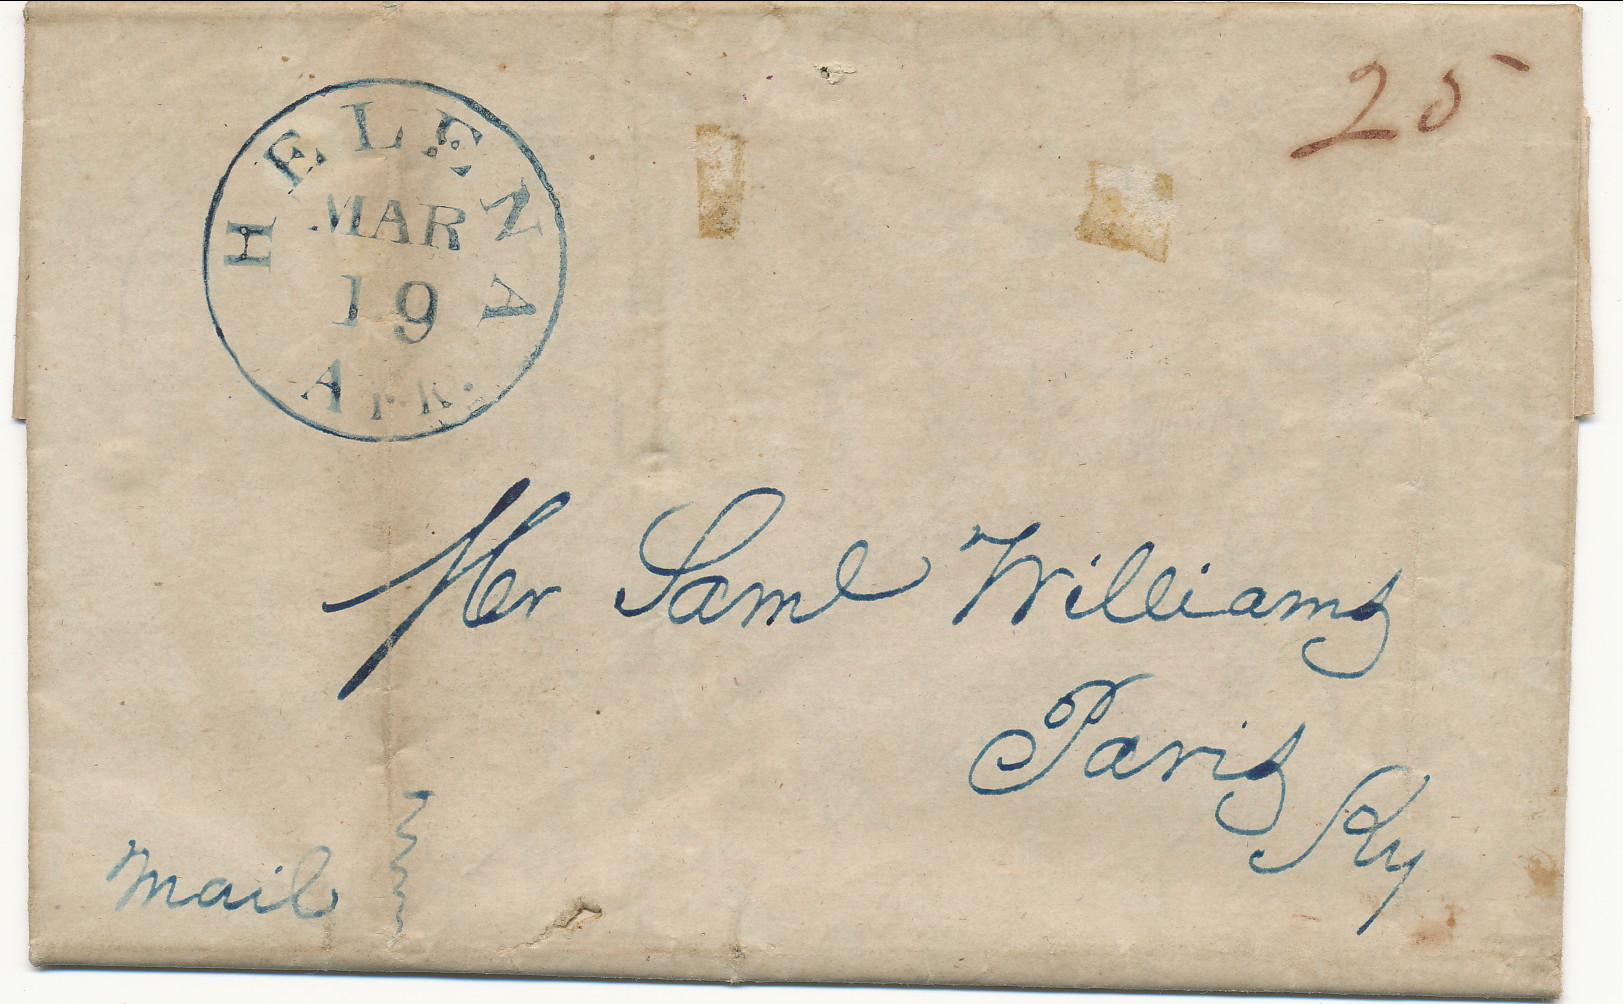 25
HELENA
MAR
19
Ark.
Mr Saml Williams
Paris
Ky
Mail